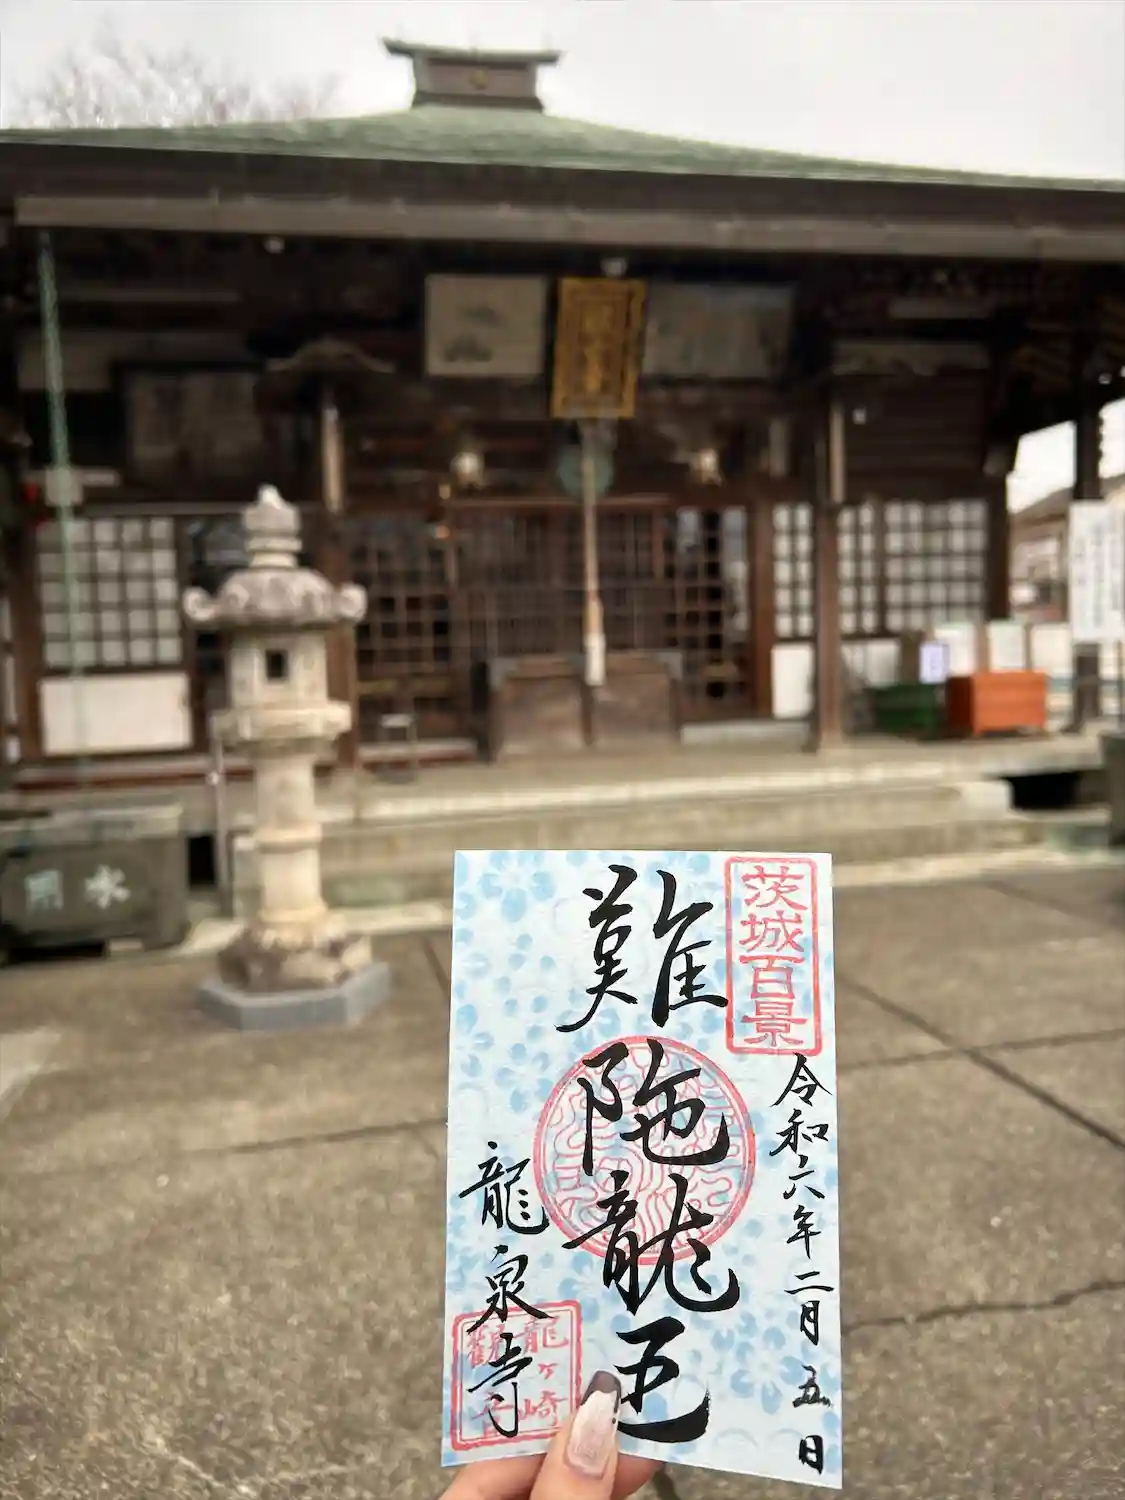 茨城百景
令和六年二月五日
難陁龍王
龍泉寺
龍ヶ崎
觀音
用水